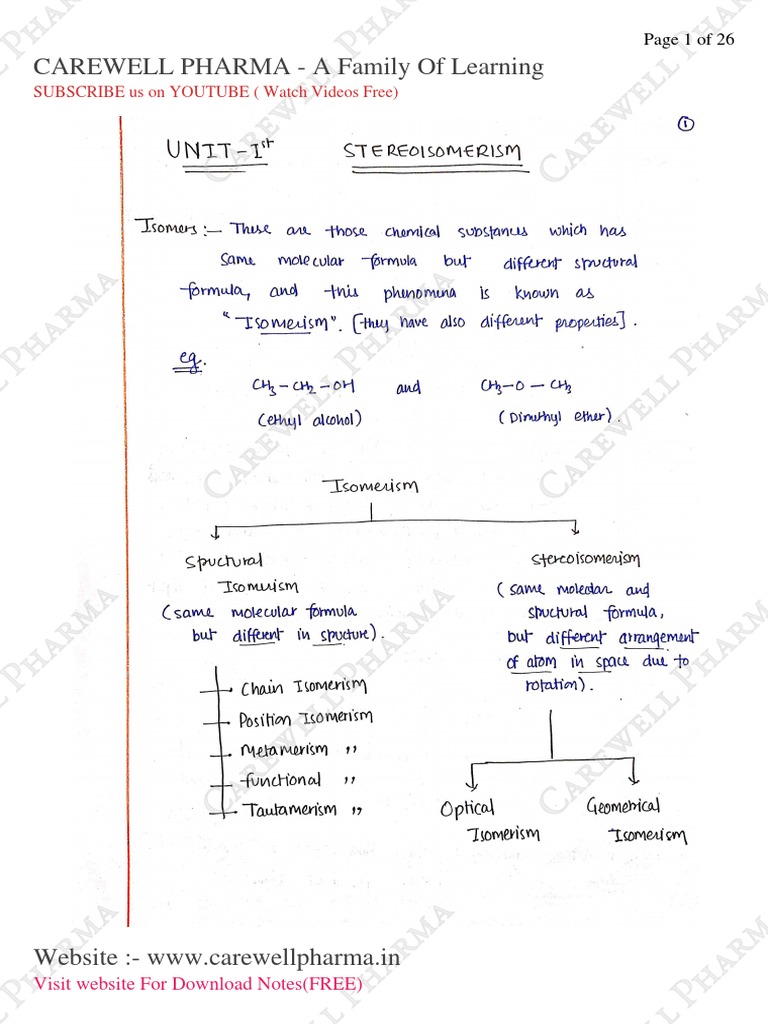 Page 1 of 26
CAREWELL PHARMA - A Family Of Learning
SUBSCRIBE us on YOUTUBE ( Watch Videos Free)
1
UNIT-Ist STEREOISOMERISM
Isomers:- These are those chemical substances which has
same molecular formula but different structural
formula, and this phenomina is known as
"Isomerism". [they have also different properties].
eg.
CH3-CH2-OH and CH3-O-CH3
(ethyl alcohol) (Dimethyl ether).
Isomerism
Structural Stereoisomerism
Isomerism
(same molecular formula
but different in structure).
(same molecular and
structural formula,
but different arrangement
of atom in space due to
rotation).
Chain Isomerism
Position Isomerism
Metamerism "
functional "
Tautamerism "
Optical
Isomerism
Geometrical
Isomerism
Website :- www.carewellpharma.in
Visit website For Download Notes(FREE)
CAREWELL PHARMA